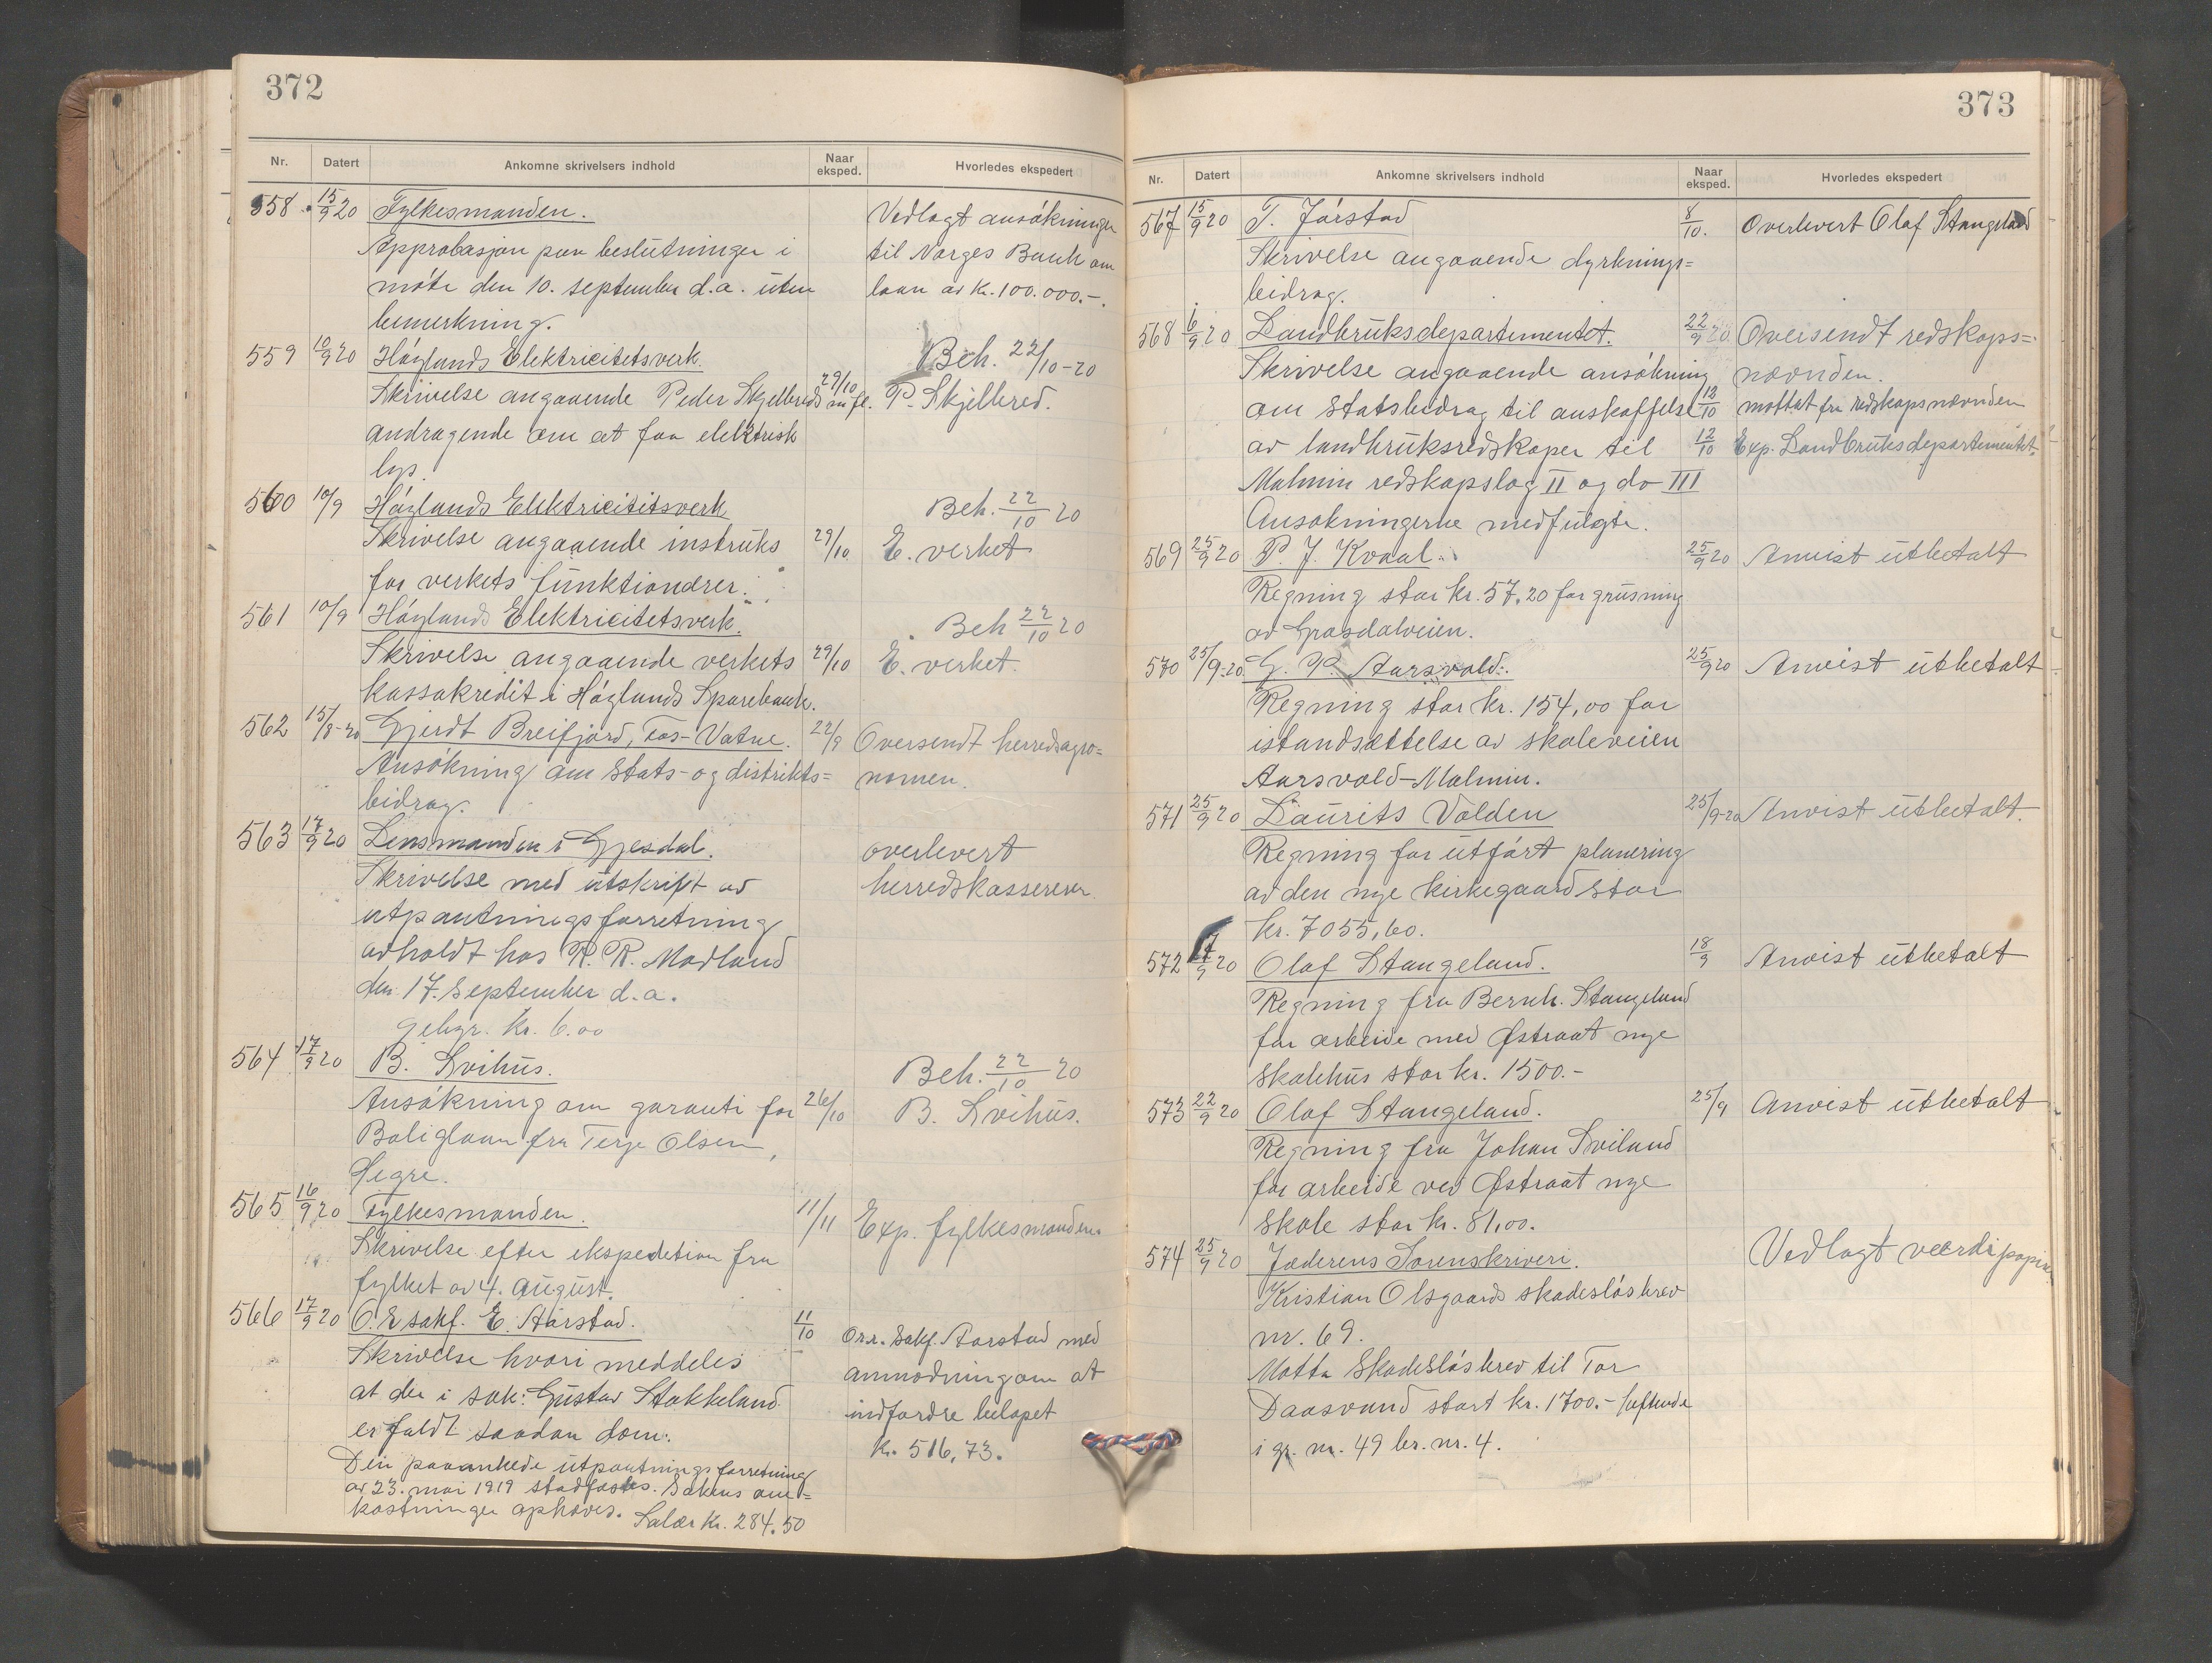 372
Nr. Datert Ankomne skrivelsers indhold Naar eksped. Hvorledes ekspedert
558 15/9 20 Fylkesmanden. Vedlagt ansökninger
Approbasjon paa beslutninger i til Norges Bank om
möte den 10. september d.a. uten laan av kr. 100.000.-.
bemerkning.
559 10/9 20 Höylands Elektricitetsverk. Beh. 22/10-20
Skrivelse angaaende Peder Skjelbreds m fl. 29/10 P. Skjelbred.
andragende om at faa elektrisk
lys.
560 10/9 Höylands Elektricitetsverk Beh. 22/10 20
Skrivelse angaaende instruks 29/10. E. verket
for verkets funktionærer.
561 10/9 Höylands Elektricitetsverk. Beh 22/10 20
Skrivelse angaaende verkets 29/10 E. verket.
kassakredit i Höylands Sparebank.
562 15/8-20 Gjerdt Breifjord, Fos-Vatne. 22/9 Oversendt herredsagro=
Ansökning om Stats- og distrikts= nomen.
bidrag.
563 17/9 20 Lensmanden i Gjesdal. overlevert
Skrivelse med utskrift av herredskassereren
utpantningsforretning
avholdt hos R. R. Madland
den 17. September d.a.
gebyr. kr. 6.00
564 17/9 20 B. Svihus. Beh. 22/10 20
Ansökning om garanti for 26/10 B. Svihus.
Boliglaan fra Terje Olsen,
Hegre.
565 16/9 20 Fylkesmanden. 11/11 Exp. fylkesmanden
Skrivelse efter ekspedetion fra
fylket av 4. August.
566 17/9 20 O.r sakf. E. Aarstad. 11/10 O.r.r. Sakf. Aarstad med
Skrivelse hvori meddeles anmodning om at
at der i sak: Gustav Stokkeland indfordre belöpet
er faldt saadan dom: Kr. 516,73.
Den paaankede utpantningsforretning
av 23. mai 1919 stadfæstes. Sakens om=
kostninger ophæves. Salær kr. 284.50
373
Nr. Datert Ankomne skrivelsers indhold Naar eksped. Hvorledes ekspedert
567 15/9 20 T. Jörstad 8/10. Overlevert Olaf Stangeland
Skrivelse angaaende dyrknings=
bidrag.
568 6/9 20 Landbruksdepartementet. 22/9 20 Oversendt redskaps=
Skrivelse angaaende ansökning nævnden.
om Statsbidrag til anskaffelse 12/10 mottat fra redskapsnævnden
av landbruksredskaper til 12/10 Exp. Landbruksdepartementet.
Malmin redskapslag II og do III
Ansökningerne medfulgte.
569 25/9 20 P. J. Kvaal. 25/9 20 Anvist utbetalt
Regning stor kr. 57.20 for grusning
av Grasdalveien.
570 25/9-20 G. P. Aarsvold. 25/9 20 Anvist utbetalt
Regning stor kr. 154,00 for
istandsættelse av skoleveien
Aarsvold-Malmin.
571 25/9 20 Laurits Volden 25/9-20 Anvist utbetalt.
Regning for utfört planering
av den nye kirkegaard stor
kr. 7055,60.
572 17/9 20 Olaf Stangeland. 18/9 Anvist utbetalt
Regning fra Bernh. Stangeland
for arbeide med Østraat nye
skolehus stor kr. 1500.-
573 22/9 20 Olaf Stangeland. 25/9 Anvist utbetalt
Regning fra Johan Sviland
for arbeide ved Østraat nye
skole stor kr. 81,00.
574 25/9 20 Jæderens Sorenskriveri. Vedlagt værdipapirer
Kristian Olsgaards skadeslösbrev
nr. 69.
Motta Skadeslösbrev til Tor
Daasvand stort kr. 1700.- heftende
i gr. nr. 49 br. nr. 4.